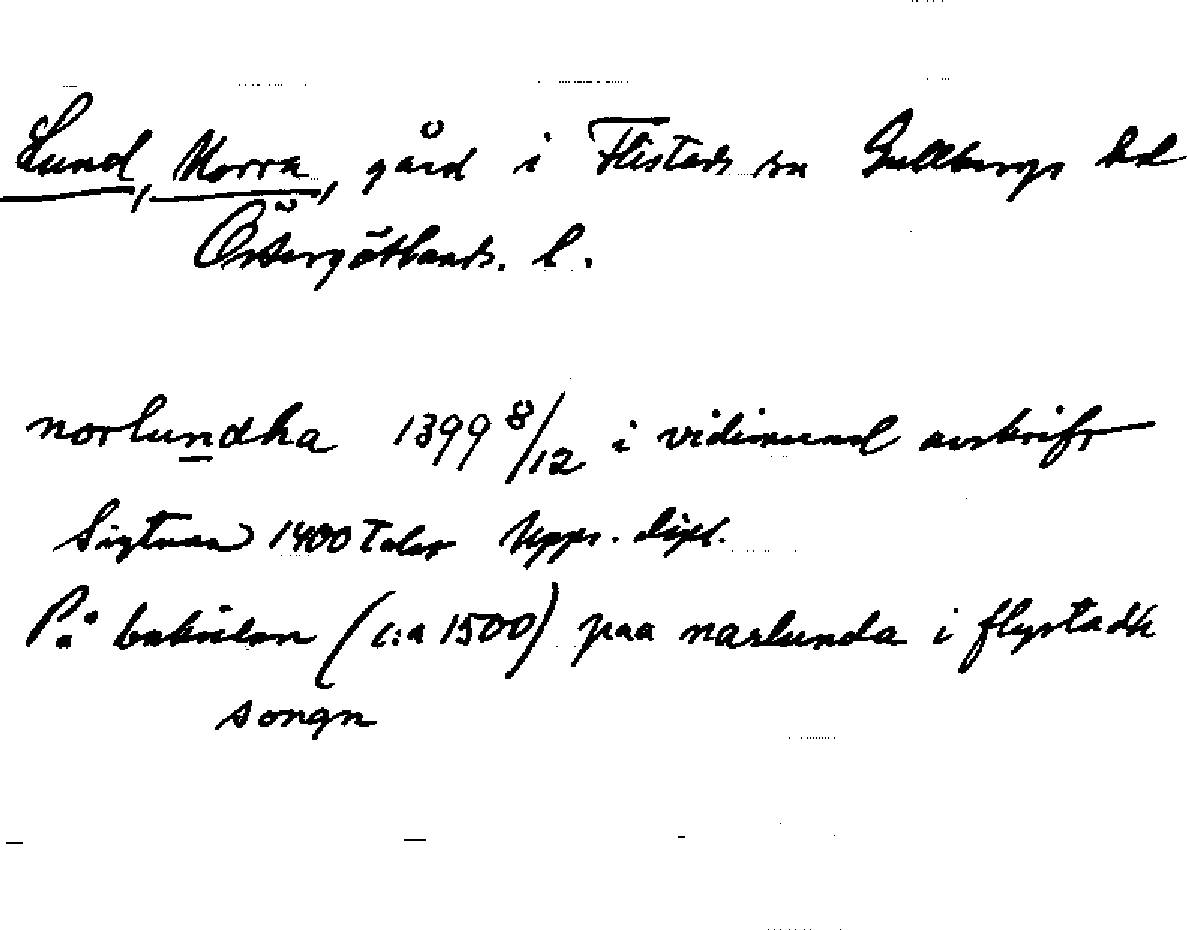 Lund, Norra, gård i Flistads sn Gullbergs hd
Östergötlands. l.
norlundha 1399 8/12 i vidimerad avskrift
Sigtuna 1400 talet Upps. dipl.
På baksidan (c:a 1500) paa narlunda i flystadh
songn